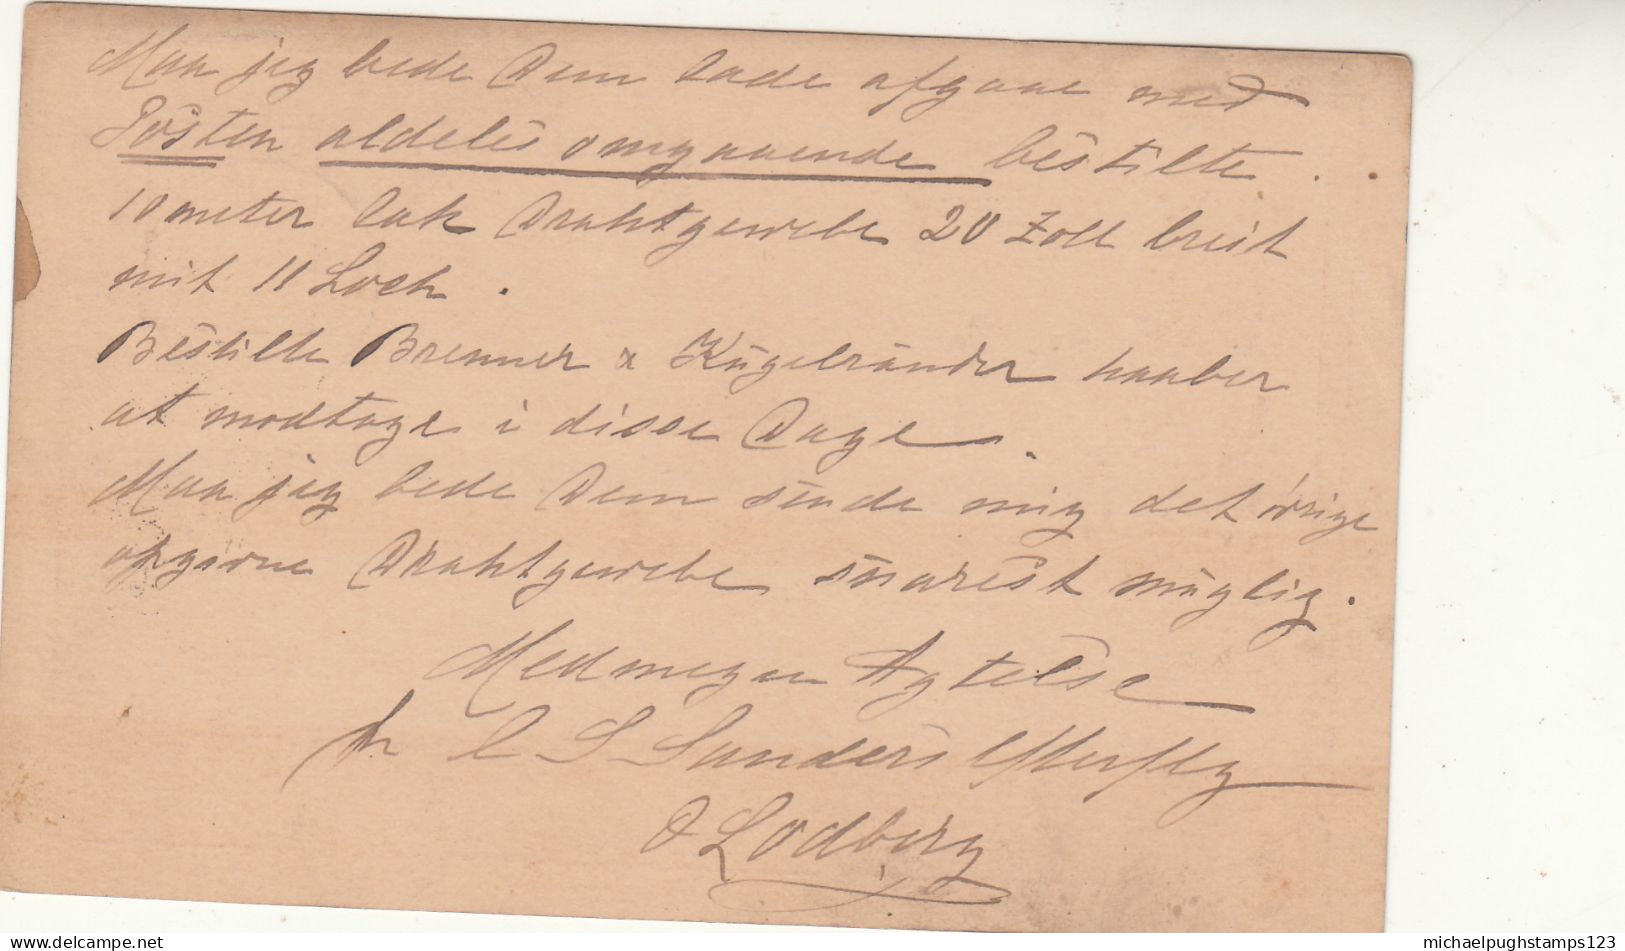 Maa jeg bede Dem lade afgaae med
Posten aldeles omgaaende bestilte
10 meter Lak Drahtgewebe 20 Zoll breit
mit 11 Loch.
Bestilte Brenner & Kugelränder haaber
at modtage i disse Dage.
Maa jeg bede Dem sende mig det övrige
opgivne Drahtgewebe snarest muglig.
Med megen Agtelse
pr C S Sanders Efterflg
O Lodberg
michaelpughstamps123
delcampe.net